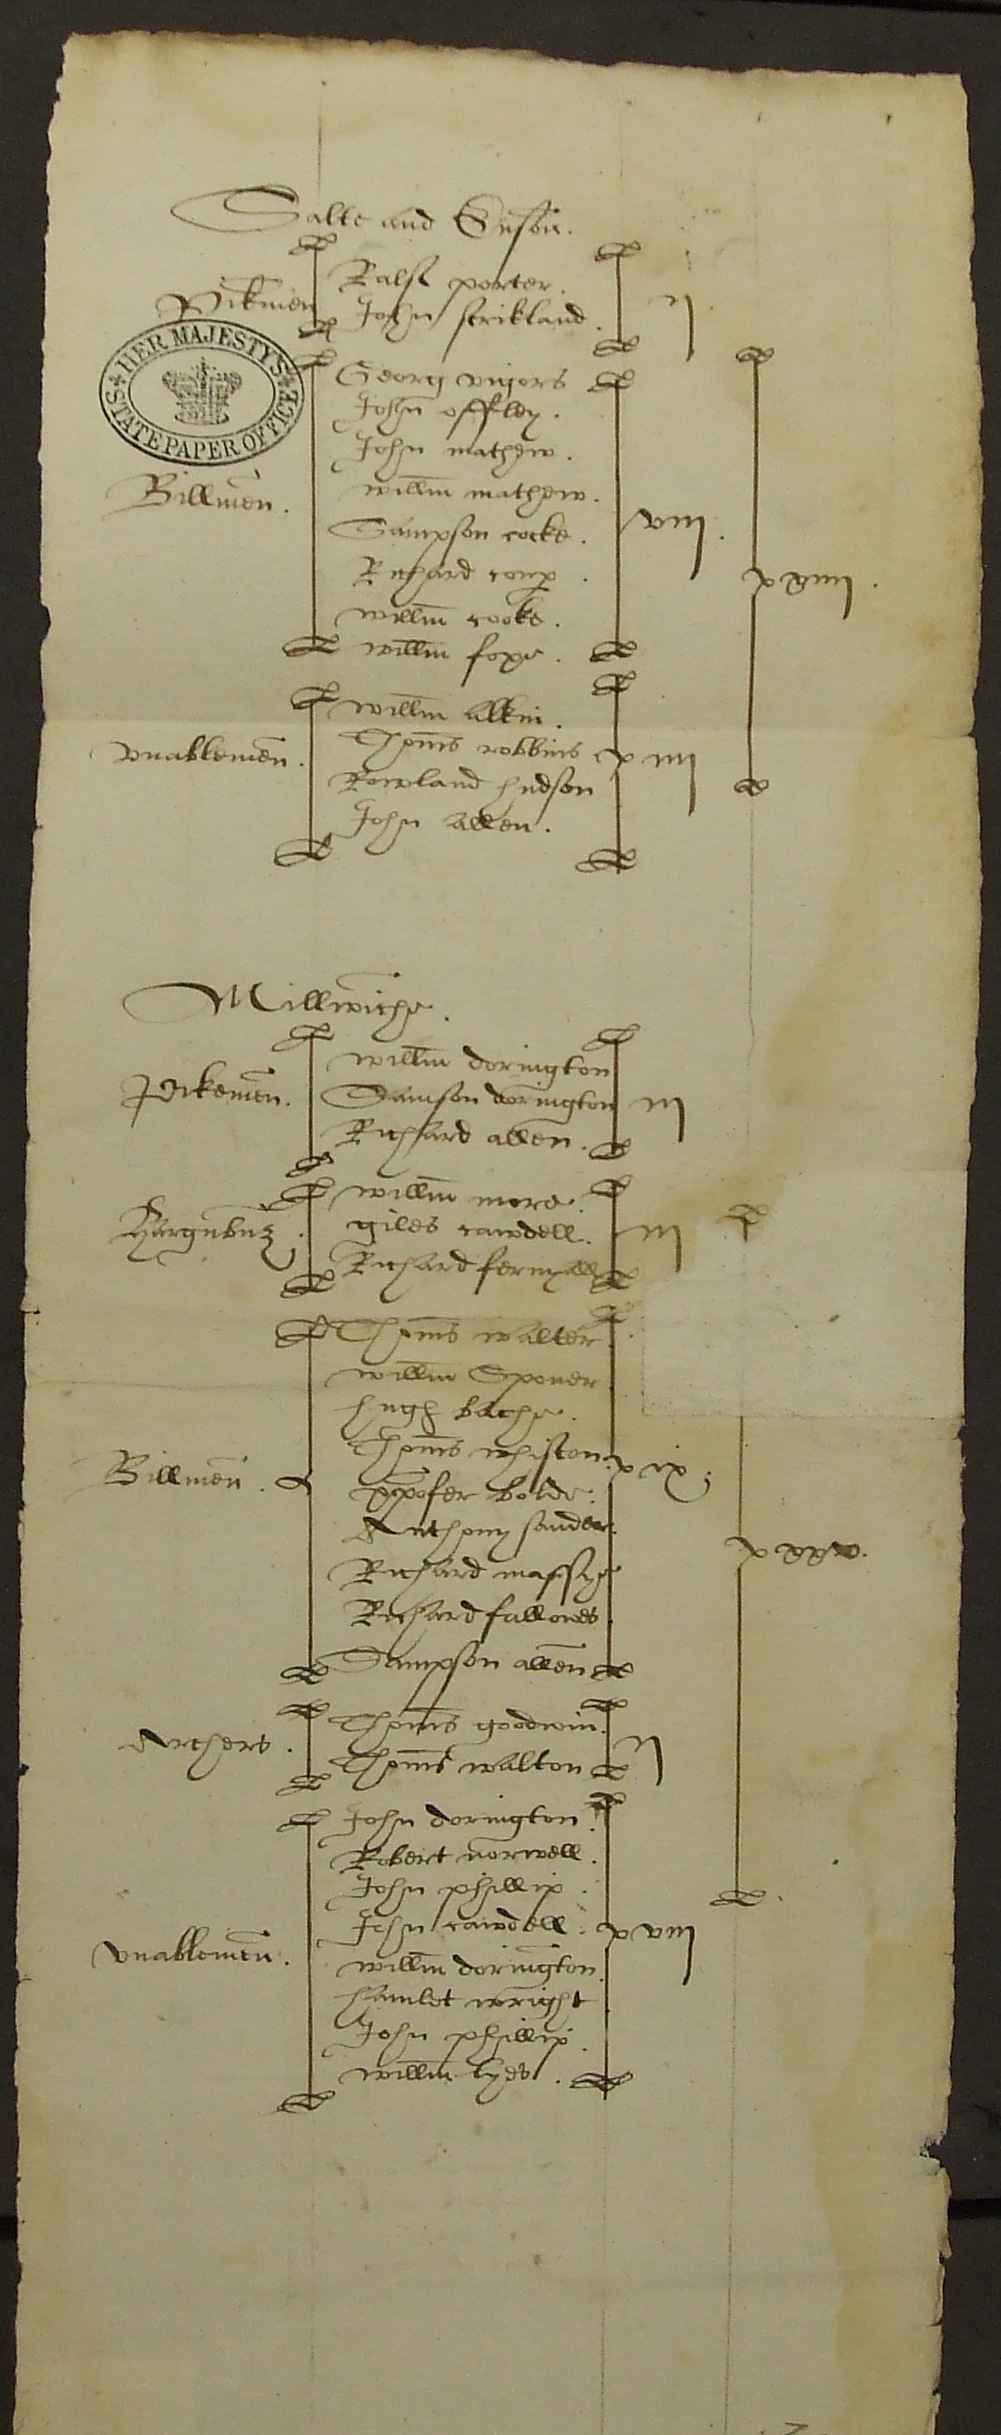 Salte and Enson.
Pikmen
Ralf porter.
John strikland.
ij.
HER MAJESTY'S STATE PAPER OFFICE
Billmen.
Georg vigors
John offley.
John mathew.
willm mathew.
Sampson cocke.
Richard coup.
willm cooke.
willm foxe.
viij.
xiiij.
vnablemen.
willm Alkin.
Thoms robbins
Rowland hudson
John Allen.
iiij
Millwiche.
Pikemen.
willm dorington
Samson dorington
Richard allen.
iij
Hargubuz.
willm more.
giles cawdell.
Richard fernyall
iij
Billmen.
Thoms walter
willm Sponer
hugh bache.
Thoms whiston.
xpofer bolde.
Anthony sander.
Richard massye
Richard fallowes.
Sampson allen
ix.
xxv.
Archers.
Thoms goodwin.
Thoms walton
ij
vnablemen.
John dorington.
Robert norwell.
John phillip.
John cawdell.
willm dorington.
hamlet wright
John phillip.
willm lyes.
viij